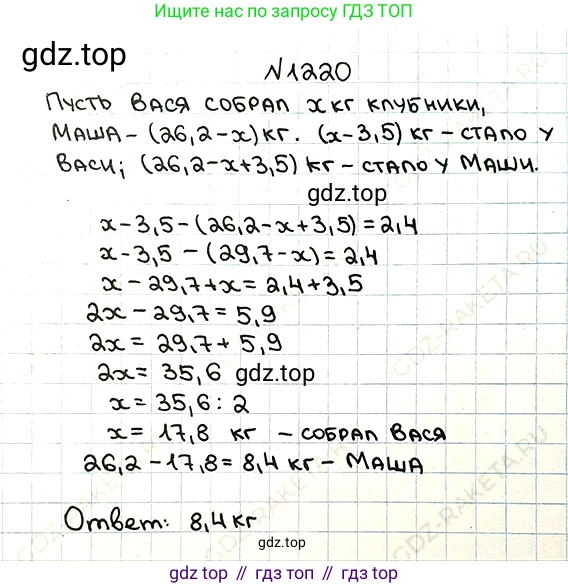 Ищите нас по запросу ГДЗ ТОП
gdz.top
N1220
Пусть Вася собрал x кг клубники,
Маша – (26,2-x) кг. (x-3,5) кг – стало у
Васи; (26,2-x+3,5) кг – стало у Маши.
gdz.top
x-3,5-(26,2-x+3,5)=2,4
x-3,5-(29,7-x)=2,4
x-29,7+x=2,4+3,5
2x-29,7=5,9
2x=29,7+5,9
2x=35,6
gdz.top
x=35,6:2
x=17,8 кг – собрал Вася
26,2-17,8=8,4 кг – Маша
Ответ: 8,4 кг
gdz.top
GDZ-RAKETA.RU
GDZ-RAKETA.RU
gdz top // гдз топ // gdz.top